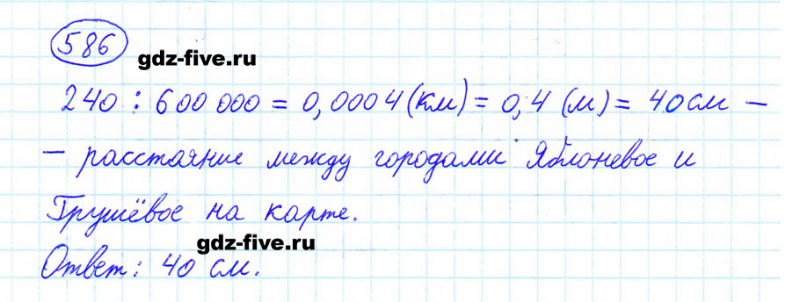 586
gdz-five.ru
240 : 600 000 = 0,0004 (км) = 0,4 (м) = 40 см —
— расстаяние между городами Яблоневое и
Грушёвое на карте.
gdz-five.ru
Ответ: 40 см.